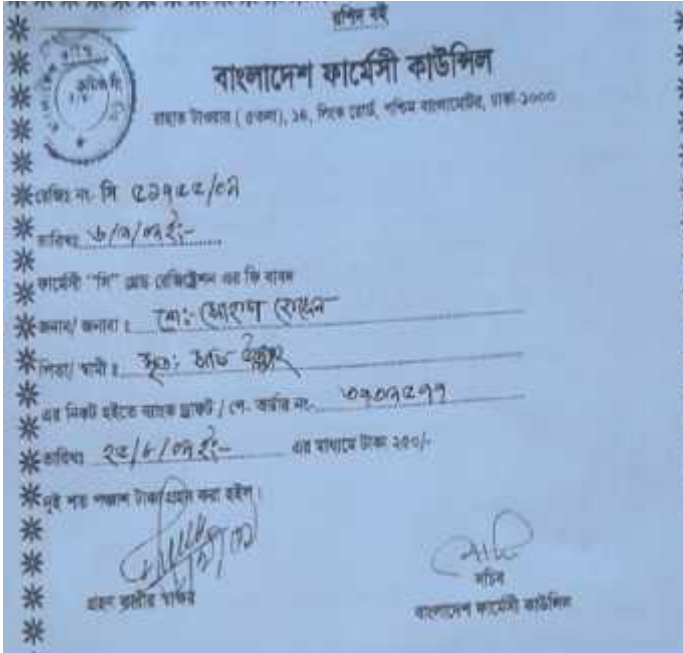 রশিদ বই
বাংলাদেশ ফার্মেসী কাউন্সিল
রাহাত টাওয়ার ( ৫তলা), ১৪, লিংক রোড, পশ্চিম বাংলামোটর, ঢাকা-১০০০
রেজিঃ নং- সি
তারিখঃ ৬/৯/০৯ইং-
ফার্মেসী "সি" গ্রেড রেজিস্ট্রেশন এর ফি বাবদ
জনাব/ জনাবা ঃ মোঃ হোসেন
পিতা/ স্বামী ঃ মৃতঃ
এর নিকট হইতে ব্যাংক ড্রাফট / পে- অর্ডার নং-
তারিখঃ ২৫/৮/০৯ইং- এর মাধ্যমে টাকা ২৫০/-
দুই শত পঞ্চাশ টাকা গ্রহন করা হইল।
গ্রহন কারীর স্বাক্ষর
সচিব
বাংলাদেশ ফার্মেসী কাউন্সিল